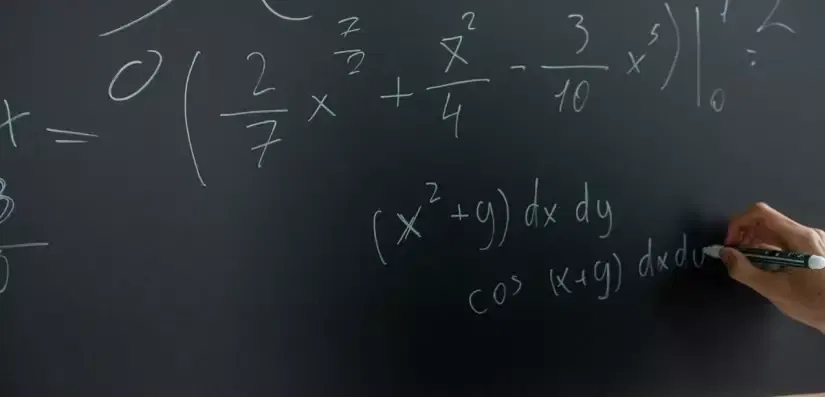 x = 0 (2/7 x^7/2 + x^2/4 - 3/10 x^5) |_0^1 = 2
3/0
(x^2 + y) dx dy
cos (x+y) dx dy